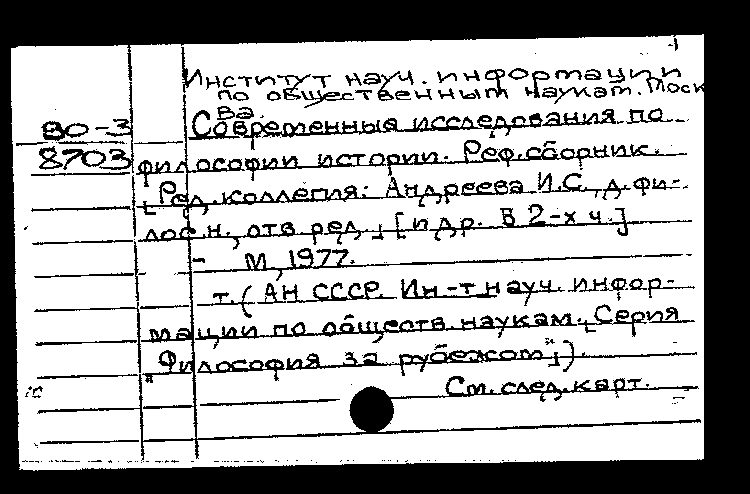 Институт науч. информации
по общественным наукам. Моск
ва.
80-3 Современные исследования по
8703 философии истории. Реф.сборник.
[Ред.коллегия: Андреева И.С., д.фи-
лос.н., отв.ред.], [и др. В 2-х ч.]
- М., 1977.
т. (АН СССР. Ин-т науч. инфор-
мации по обществ. наукам. [Серия
"Философия за рубежом"]).
См. след. карт.